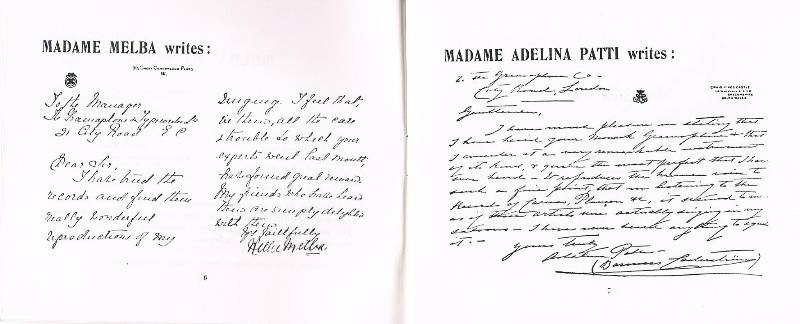 MADAME MELBA writes:
30, Great Cumberland Place
W.
To the Manager
The Gramophone & Typewriter Ltd
21 City Road E C
Dear Sir,
I have tried the
records and find them
really wonderful
reproductions of my
singing. I feel that,
in them, all the care
& trouble to which your
experts went last month,
have found great reward.
My friends who have heard
them are simply delighted
with them
Yrs faithfully
Nellie Melba
6
MADAME ADELINA PATTI writes:
To The Gramophone Co-
City Road, London
CRAIG Y NOS CASTLE
SOUTH WALES
Gentlemen,
I have much pleasure in stating that
I have heard your Gramophone & that
I consider it a very remarkable instrument
of its kind, & quite the most perfect that I have
ever heard. It reproduces the human voice to
such a fine point, that in listening to the
Records of Plançon &c, it seemed to me
as if these artists were actually singing in my
I have never heard anything to equal
it.-
Yours truly
Adelina Patti
(Baroness Cederström)
7